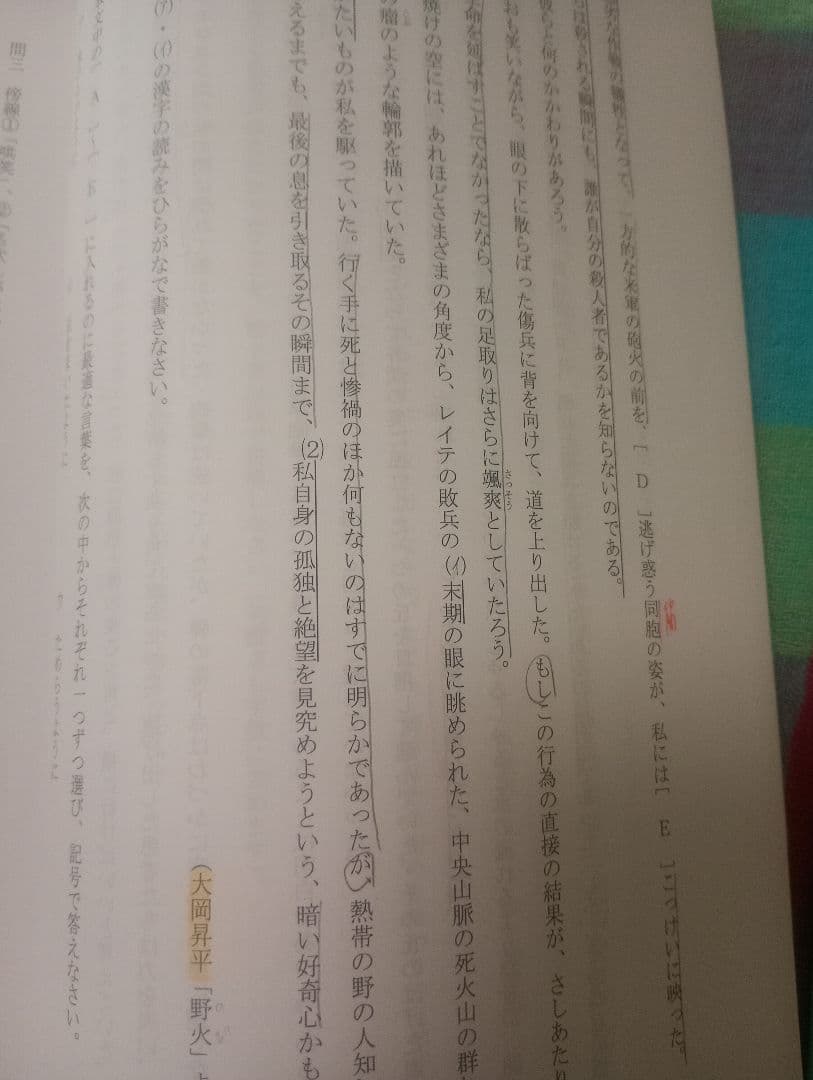 一方的な米軍の砲火の前を、[ D ]逃げ惑う同胞の姿が、私には[ E ]こっけいに映った。
仲間
殺される瞬間にも、誰が自分の殺人者であるかを知らないのである。
何のかかわりがあろう。
笑いながら、眼の下に散らばった傷兵に背を向けて、道を上り出した。もしこの行為の直接の結果が、さしあたり
命を延ばすことでなかったなら、私の足取りはさらに颯爽としていたろう。
さっそう
焼けの空には、あれほどさまざまの角度から、レイテの敗兵の(イ)末期の眼に眺められた、中央山脈の死火山の群
瘤のような輪郭を描いていた。
たいものが私を駆っていた。行く手に死と惨禍のほか何もないのはすでに明らかであったが、熱帯の野の人知
えるまでも、最後の息を引き取るその瞬間まで、(2)私自身の孤独と絶望を見究めようという、暗い好奇心かも
(大岡昇平「野火」
のび
(ア)・(イ)の漢字の読みをひらがなで書きなさい。
に入れるのに最適な言葉を、次の中からそれぞれ一つずつ選び、記号で答えなさい。
カ ためらうように
問三 傍線①